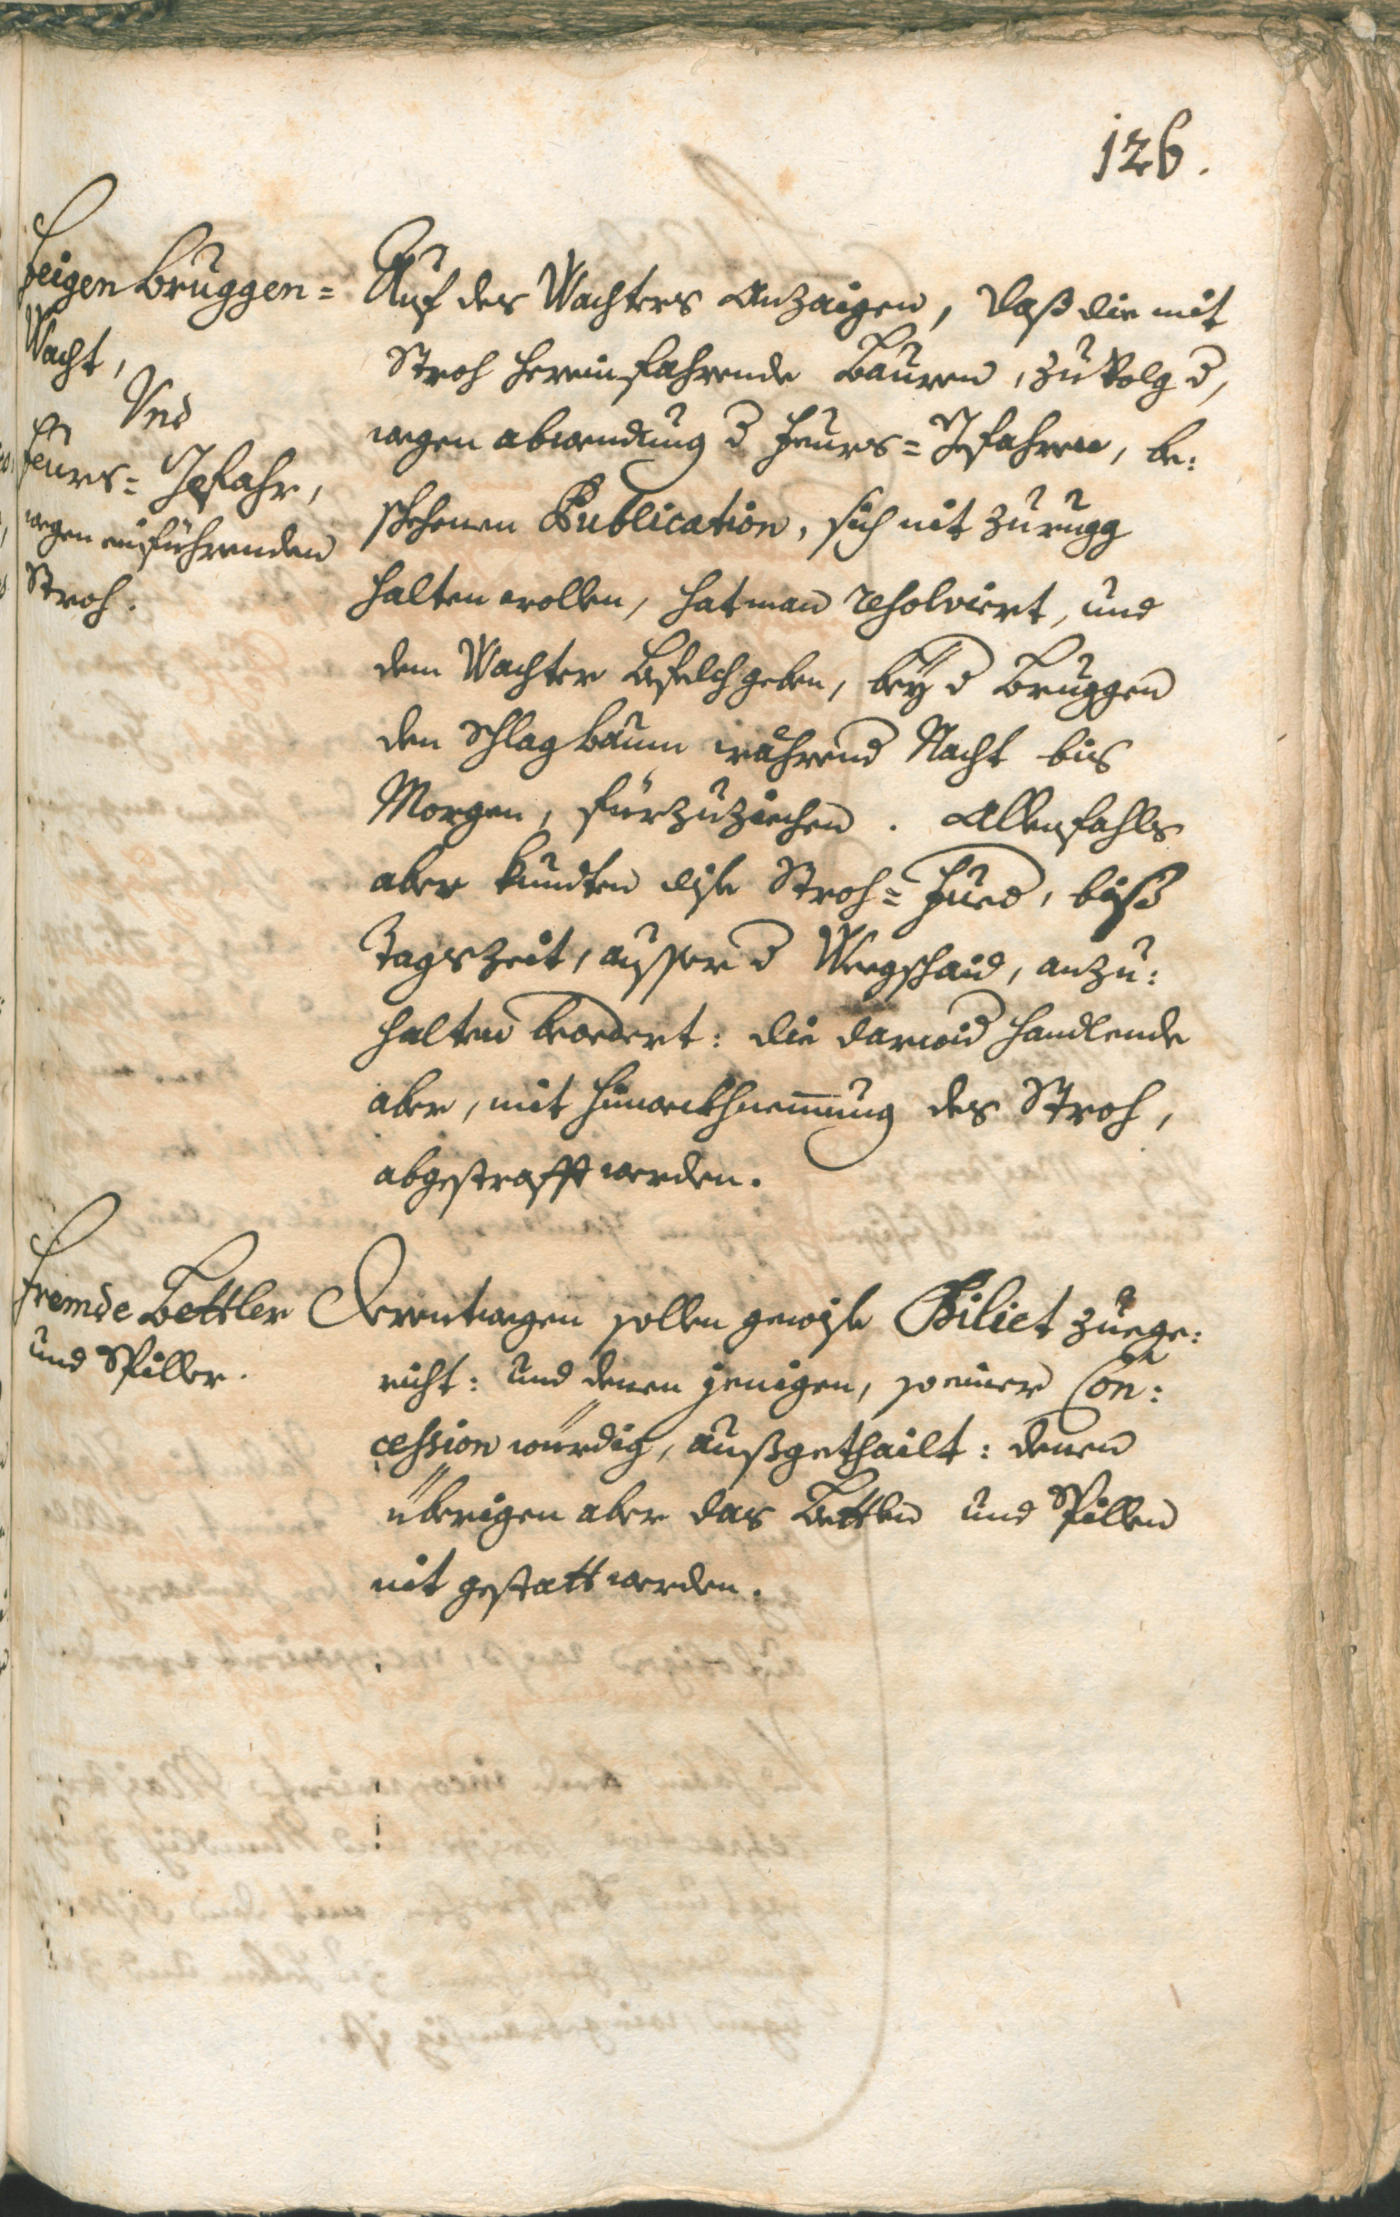 126.
Feigen Bruggen=
Wacht,
Und
Feurs= Gefahr,
wegen einführenden
Stroh.
Auf des Wachters Anzaigen, daß die mit
Stroh hereinfahrende Bauren, zu Volg d,
wegen abwendung d Feurs= Gefahren, be:
schehenen Publication, sich nit zurugg
halten wollen, hat man resolviert, und
dem Wachter Befelch geben, bey d Bruggen
den Schlagbaum während Nacht bis
Morgen, fürzuziechen. Allenfahls
aber kundten dise Stroh= Fued, biß
Tagszeit, ausser d Weegschaid, anzu:
halten beordert: die darwid handlende
aber, mit hinweckhnemmung des Stroh,
abgestrafft werden.
Fremde Bettler
und Spiller.
Derentwegen sollen gewise Biliet zuege:
richt: und denen jenigen, so einer Con:
cession würdig, außgethailt: denen
überigen aber das Bettlen und Spillen
nit gestatt werden.